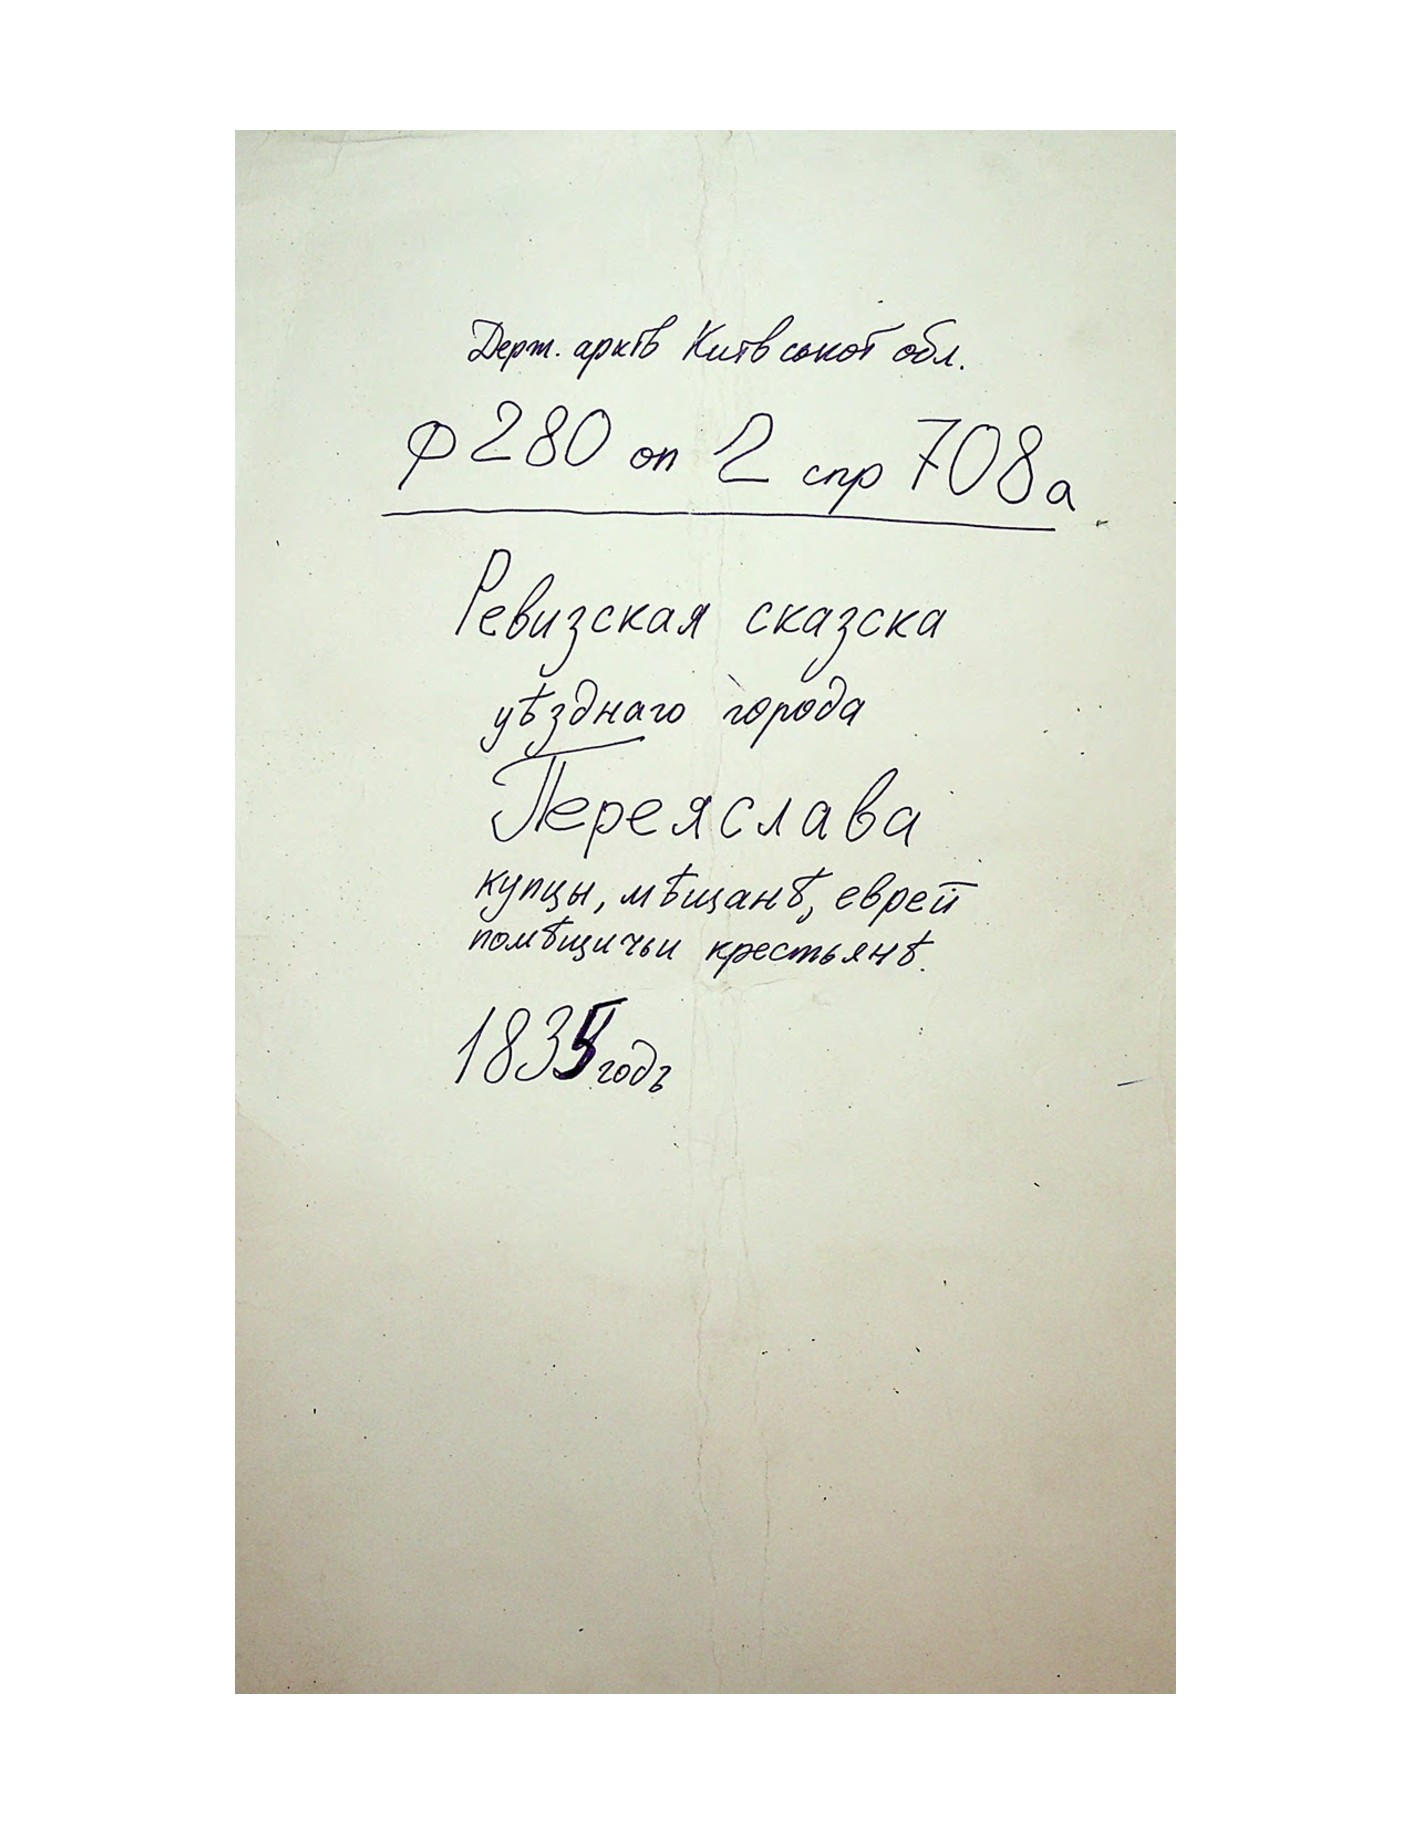 Держ. архів Київської обл.
Ф 280 оп 2 спр 708а
Ревизская сказска
уѣзднаго города
Переяслава
купцы, мѣщанѣ, еврей
помѣщичьи крестьянѣ.
1835 годъ